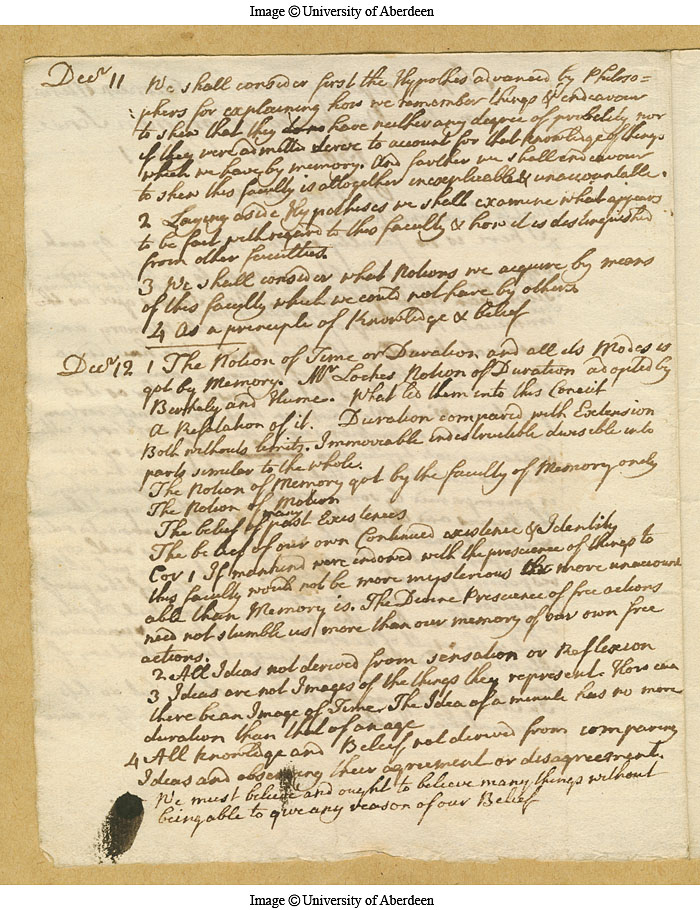 Image © University of Aberdeen
Decr 11 We shall consider first the Hypotheses advanced by Philoso=
phers for explaining how we remember things & endeavour
to shew that they have neither any degree of probability nor
if they were admitted serve to account for that knowledge of things
which we have by memory. And farther we shall endeavour
to shew this faculty is altogether inexplicable & unaccountable.
2 Laying aside Hypotheses we shall examine what appears
to be fact with regard to this faculty & how it is distinguished
from other faculties.
3 We shall consider what Notions we acquire by means
of this faculty which we could not have by others
4 As a principle of Knowledge & belief
Decr 12 1 The Notion of Time or Duration and all its Modes is
got by Memory. Mr Lockes Notion of Duration adopted by
Berkely and Hume. What led them into this Conceit
A Refutation of it. Duration compared with Extension
Both without limits. Immoveable indestructible divisible into
parts similar to the whole.
The Notion of Memory got by the faculty of Memory onely
The Notion of Motion
The belief of many past Existences
The belief of our own Continued existence & Identity
Cor 1 If mankind were endowed with the prescience of things to
this faculty would not be more mysterious more unaccount
able than Memory is. The Divine Prescience of free actions
need not stumble us more than our memory of our own free
actions.
2 All Ideas not derived from sensation or Reflexion
3 Ideas are not Images of the things they represent. How can
there be an Image of Time. The Idea of a minute has no more
duration than that of an age
4 All knowledge and Belief not derived from comparing
Ideas and observing their agreement or disagreement.
We must believe and ought to believe many things without
being able to give any reason of our Belief
Image © University of Aberdeen